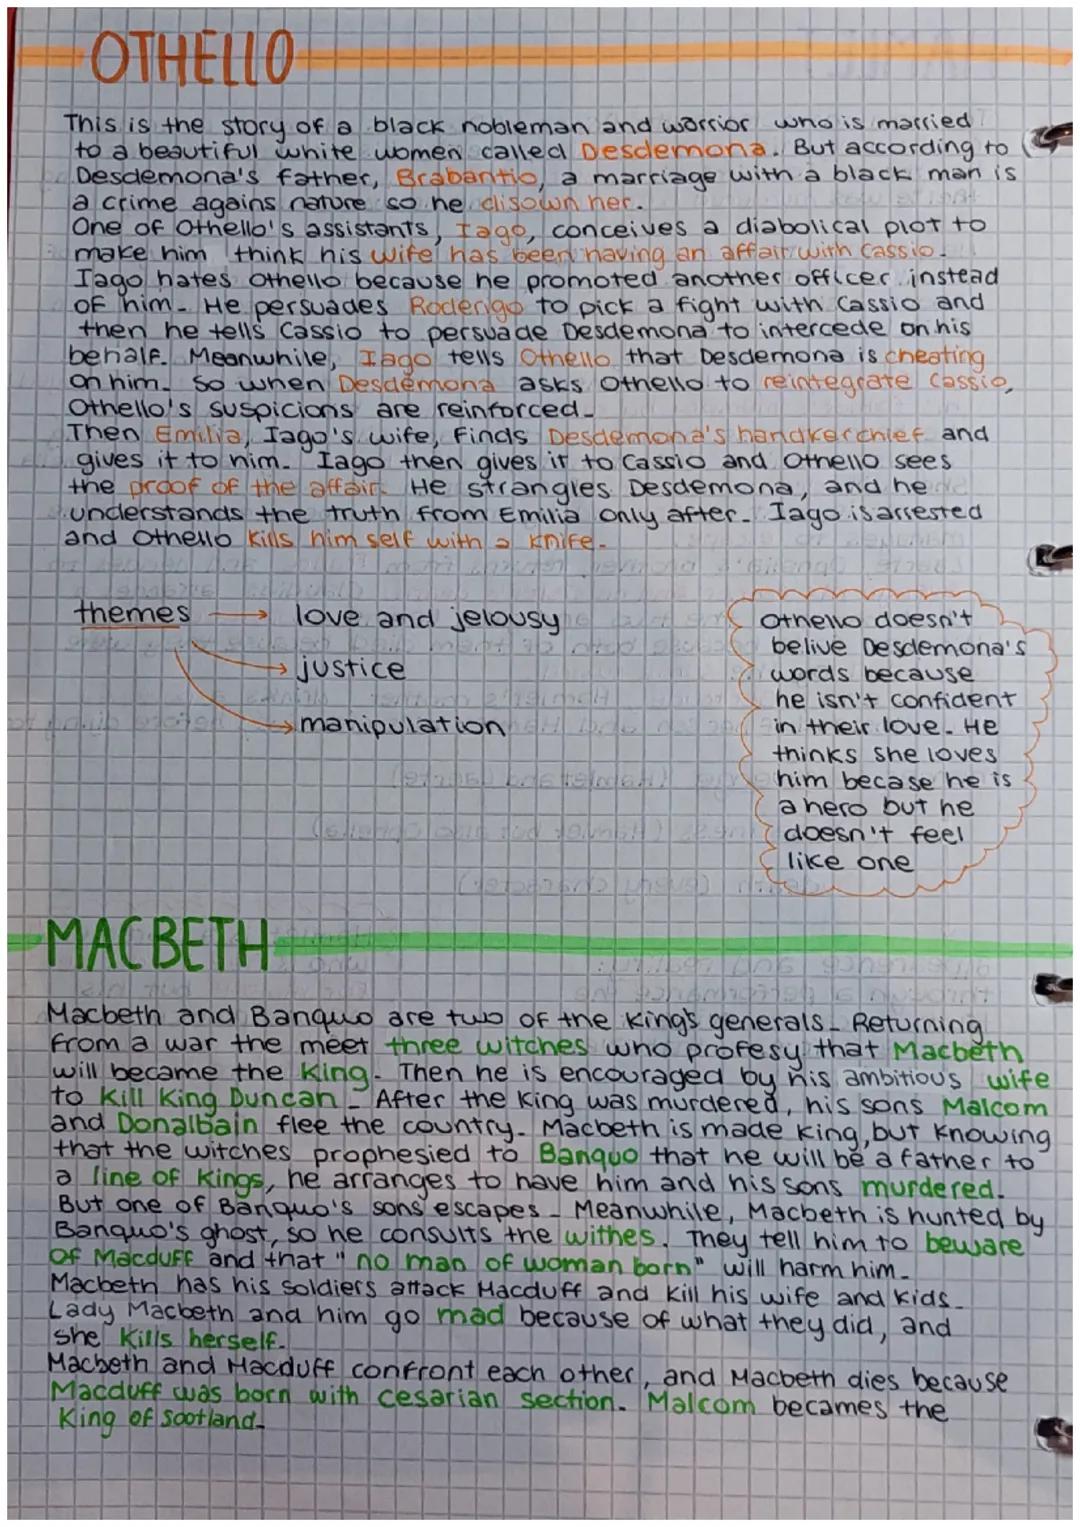 OTHELLO
This is the story of a black nobleman and warrior who is married
to a beautiful white women called Desdemona. But according to
Desdemona's father, Brabantio, a marriage with a black man is
a crime agains nature so he disown her.
One of Othello's assistants, Iago, conceives a diabolical plot to
make him think his wife has been having an affair with Cassio.
Iago hates Othello because he promoted another officer instead
of him. He persuades Roderigo to pick a fight with Cassio and
then he tells Cassio to persuade Desdemona to intercede on his
behalf. Meanwhile, Iago tells Othello that Desdemona is cheating
on him. So when Desdemona asks Othello to reintegrate Cassio,
Othello's suspicions are reinforced.
Then Emilia, Iago's wife, finds Desdemona's handkerchief and
gives it to him. Iago then gives it to Cassio and Othello sees
the proof of the affair. He strangles Desdemona, and he
understands the truth from Emilia only after. Iago is arrested
and Othello kills him self with a knife.
themes → love and jelousy
→ justice
→ manipulation
Othello doesn't
belive Desdemona's
words because
he isn't confident
in their love. He
thinks she loves
him becase he is
a hero but he
doesn't feel
like one
MACBETH
Macbeth and Banquo are two of the King's generals. Returning
from a war the meet three witches who profesy that Macbeth
will became the King. Then he is encouraged by his ambitious wife
to kill King Duncan. After the King was murdered, his sons Malcom
and Donalbain flee the country. Macbeth is made King, but knowing
that the witches prophesied to Banquo that he will be a father to
a line of Kings, he arranges to have him and his sons murdered.
But one of Banquo's sons escapes. Meanwhile, Macbeth is hunted by
Banquo's ghost, so he consults the withes. They tell him to beware
of Macduff and that "no man of woman born" will harm him.
Macbeth has his soldiers attack Macduff and kill his wife and kids.
Lady Macbeth and him go mad because of what they did, and
she kills herself.
Macbeth and Macduff confront each other, and Macbeth dies because
Macduff was born with cesarian section. Malcom becames the
King of Scotland.